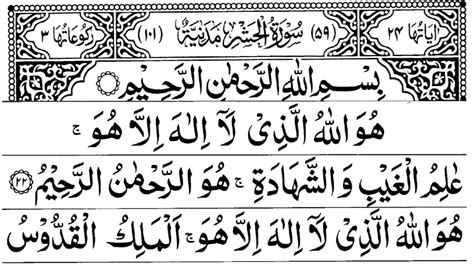 اٰیَاتُهَا ٢٤ (٥٩) سُوْرَةُ الْحَشْرِ مَدَنِيَّةٌ (١٠١) رُكُوْعَاتُهَا ٣
بِسْمِ اللهِ الرَّحْمٰنِ الرَّحِيْمِ
هُوَ اللهُ الَّذِیْ لَاۤ اِلٰهَ اِلَّا هُوَ ۚ
عٰلِمُ الْغَیْبِ وَالشَّهَادَةِ ۚ هُوَ الرَّحْمٰنُ الرَّحِیْمُ ﴿٢٢﴾
هُوَ اللهُ الَّذِیْ لَاۤ اِلٰهَ اِلَّا هُوَ ۚ اَلْمَلِكُ الْقُدُّوْسُ